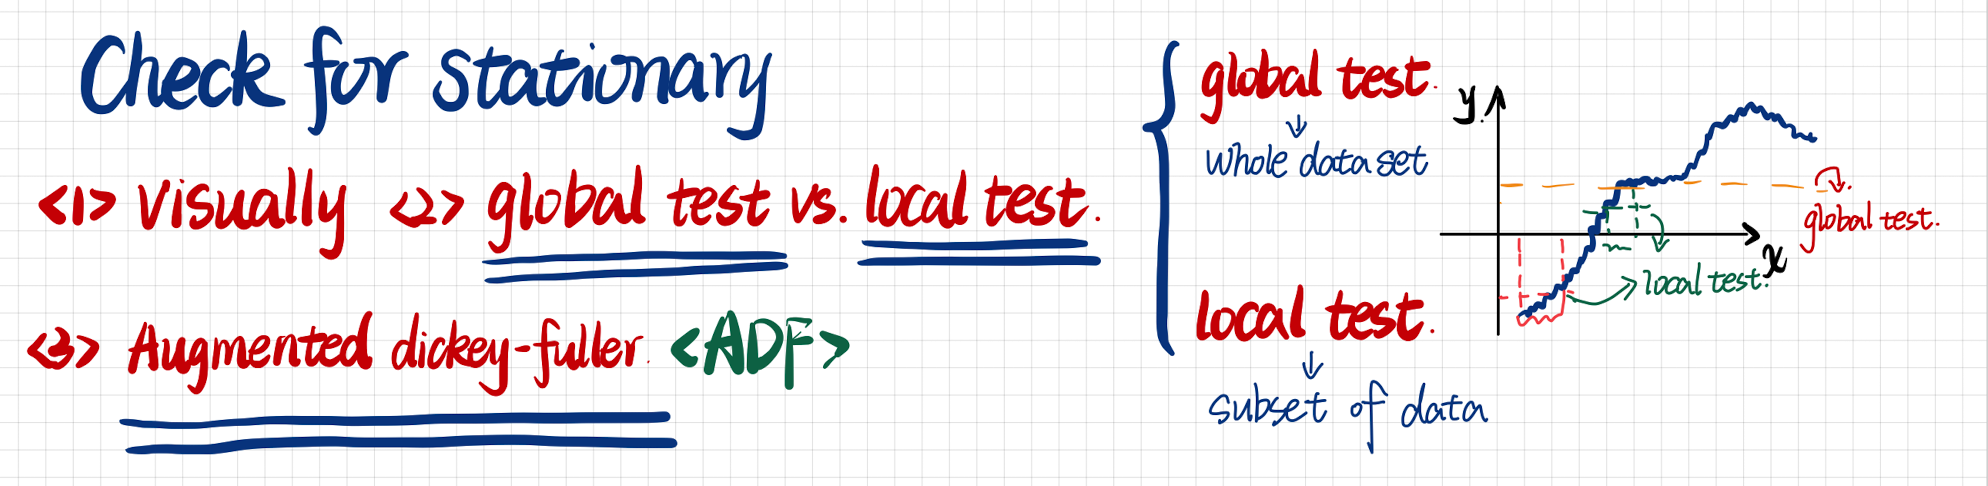 Check for stationary
<1> visually <2> global test vs. local test.
<3> Augmented dickey-fuller. <ADF>
global test.
whole data set
local test.
subset of data
y
global test.
x
local test.